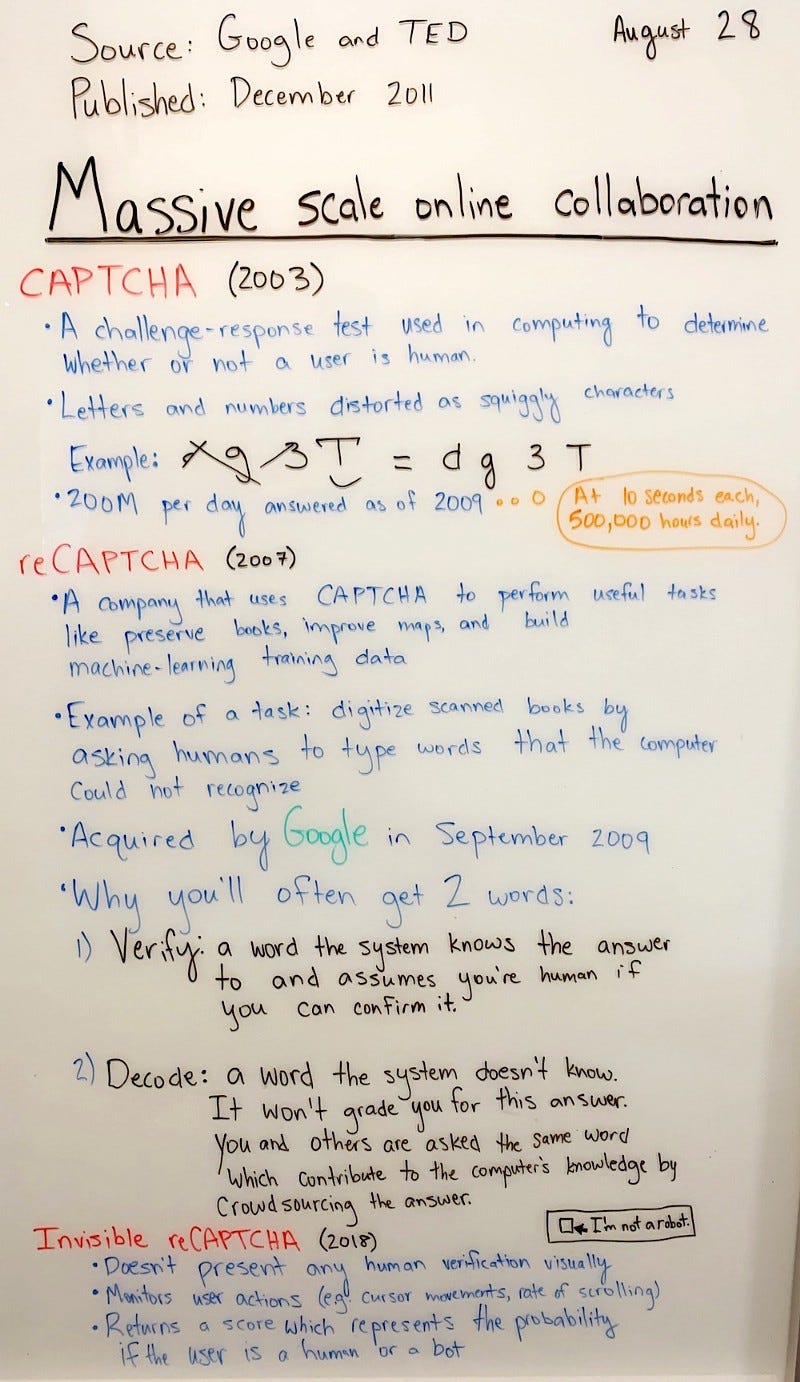 Source: Google and TED
August 28
Published: December 2011
Massive scale online collaboration
CAPTCHA (2003)
• A challenge-response test used in computing to determine
whether or not a user is human.
• Letters and numbers distorted as squiggly characters
Example: dg3T = dg3T
• 200M per day answered as of 2009 • • o
At 10 seconds each,
500,000 hours daily.
reCAPTCHA (2007)
• A company that uses CAPTCHA to perform useful tasks
like preserve books, improve maps, and build
machine-learning training data
• Example of a task: digitize scanned books by
asking humans to type words that the computer
could not recognize
• Acquired by Google in September 2009
• Why you'll often get 2 words:
1) Verify: a word the system knows the answer
to and assumes you're human if
you can confirm it.
2) Decode: a word the system doesn't know.
It won't grade you for this answer.
You and others are asked the same word
which contribute to the computer's knowledge by
crowdsourcing the answer.
I'm not a robot.
Invisible reCAPTCHA (2018)
• Doesn't present any human verification visually
• Monitors user actions (e.g. cursor movements, rate of scrolling)
• Returns a score which represents the probability
if the user is a human or a bot